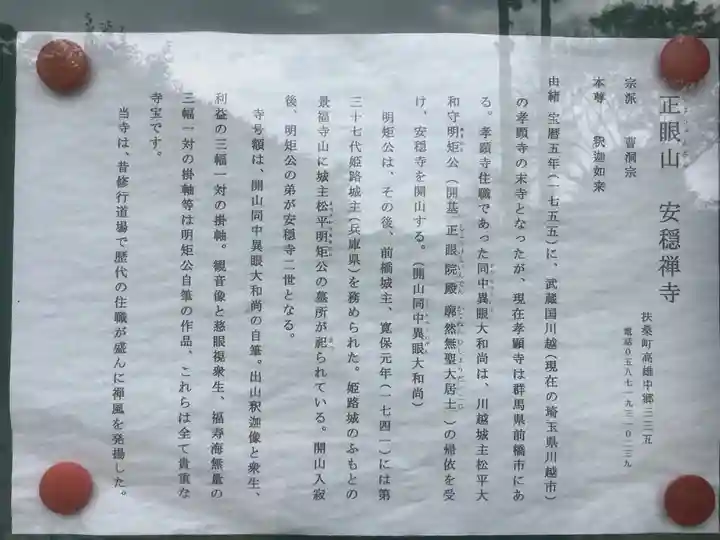 正眼山　安穏禅寺
扶桑町高雄中郷三三五
電話０５８７－９３－０２３９
宗派　曹洞宗
本尊　釈迦如来
由緒　宝暦五年(一七五五)に、武蔵国川越(現在の埼玉県川越市)
の孝顕寺の末寺となったが、現在孝顕寺は群馬県前橋市にあ
る。孝顕寺住職であった同中異眼大和尚は、川越城主松平大
和守明矩公(開基 正眼院殿 廓然無聖大居士)の帰依を受
け、安穏寺を開山する。(開山同中異眼大和尚)
明矩公は、その後、前橋城主、寛保元年(一七四一)には第
三十七代姫路城主(兵庫県)を務められた。姫路城のふもとの
景福寺山に城主松平明矩公の墓所が祀られている。開山入寂
後、明矩公の弟が安穏寺二世となる。
寺号額は、開山同中異眼大和尚の自筆。出山釈迦像と衆生、
利益の三幅一対の掛軸。観音像と慈眼視衆生、福寿海無量の
三幅一対の掛軸等は明矩公自筆の作品、これらは全て貴重な
寺宝です。
当寺は、昔修行道場で歴代の住職が盛んに禅風を発揚した。